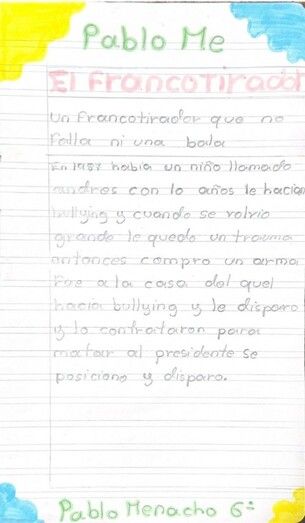 Pablo Me
El Francotirador
un francotirador que no
falla ni una bala
En 1987 habia un niño llamado
andres con 10 años le hacian
bullying y cuando se volvio
grande le quedo un trauma
entonces compro un arma
Fue a la casa del quel
hacia bullying y le disparo
y lo contrataron para
matar al presidente se
posiciono y disparo.
Pablo Menacho 6º